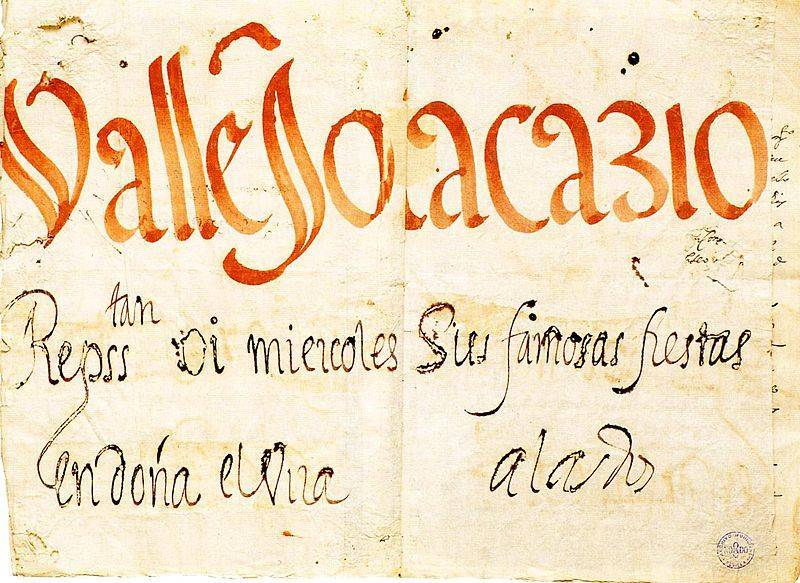 Vallejo acazio
Repss tan oi miercoles Sus famosas fiestas
en doña elvira a las dos